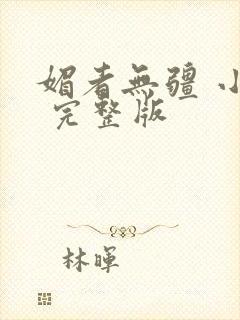 媚者無疆 小
完整版
林暉